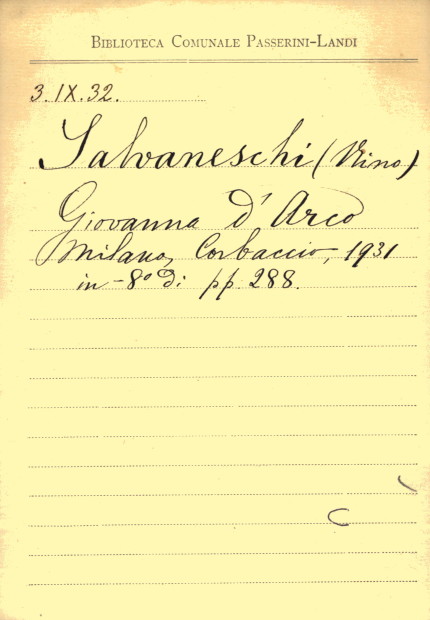 Biblioteca Comunale Passerini-Landi
3. IX. 32.
Salvaneschi (Nino)
Giovanna d'Arco
Milano, Corbaccio, 1931
in-8º di pp. 288.